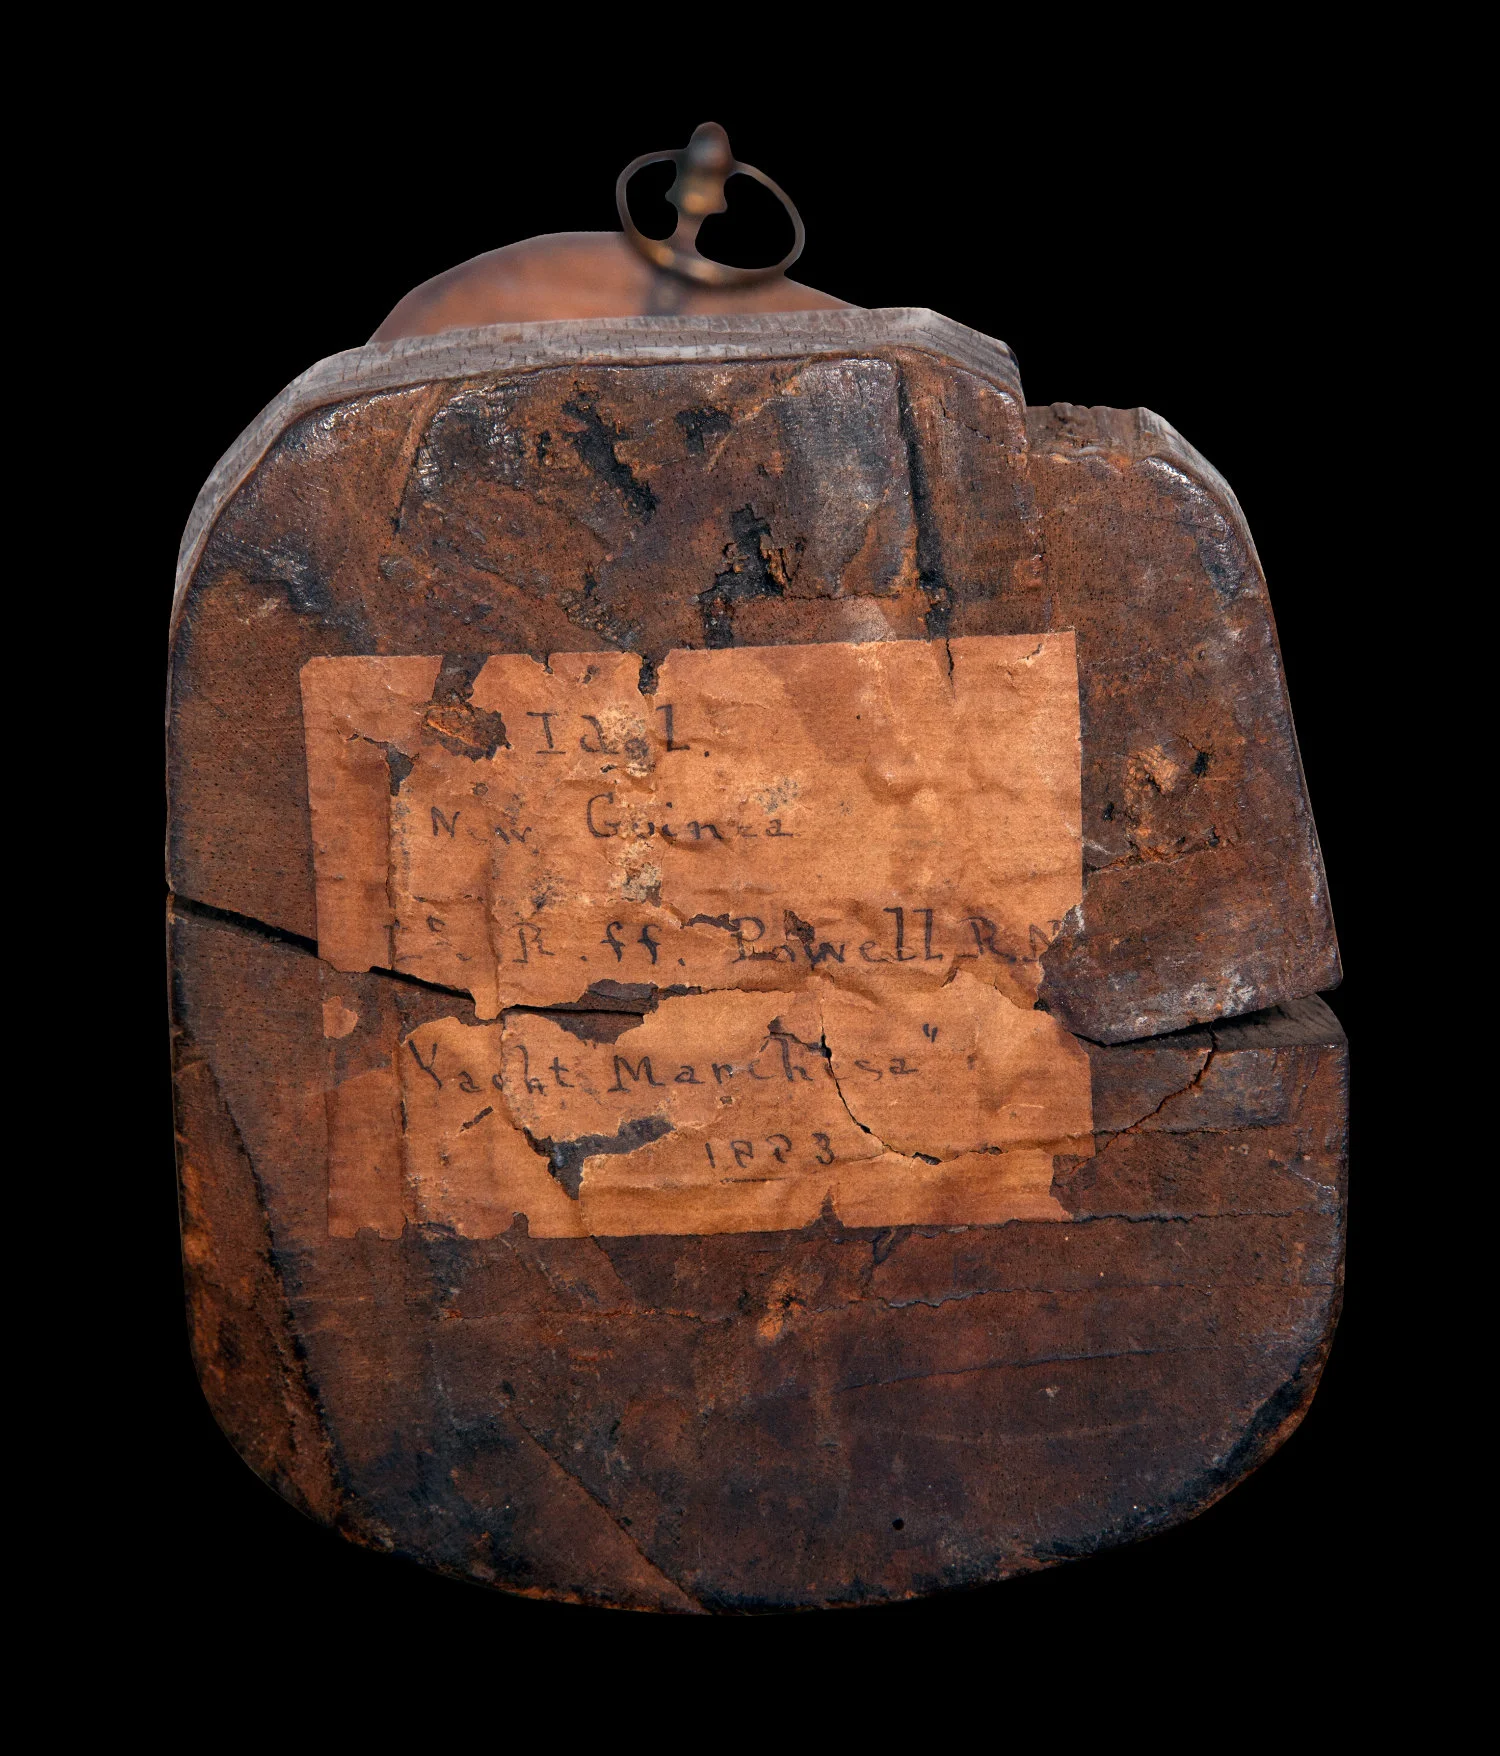 Idol.
New Guinea
R. ff. Powell R.N
Yacht "Marchesa"
1883